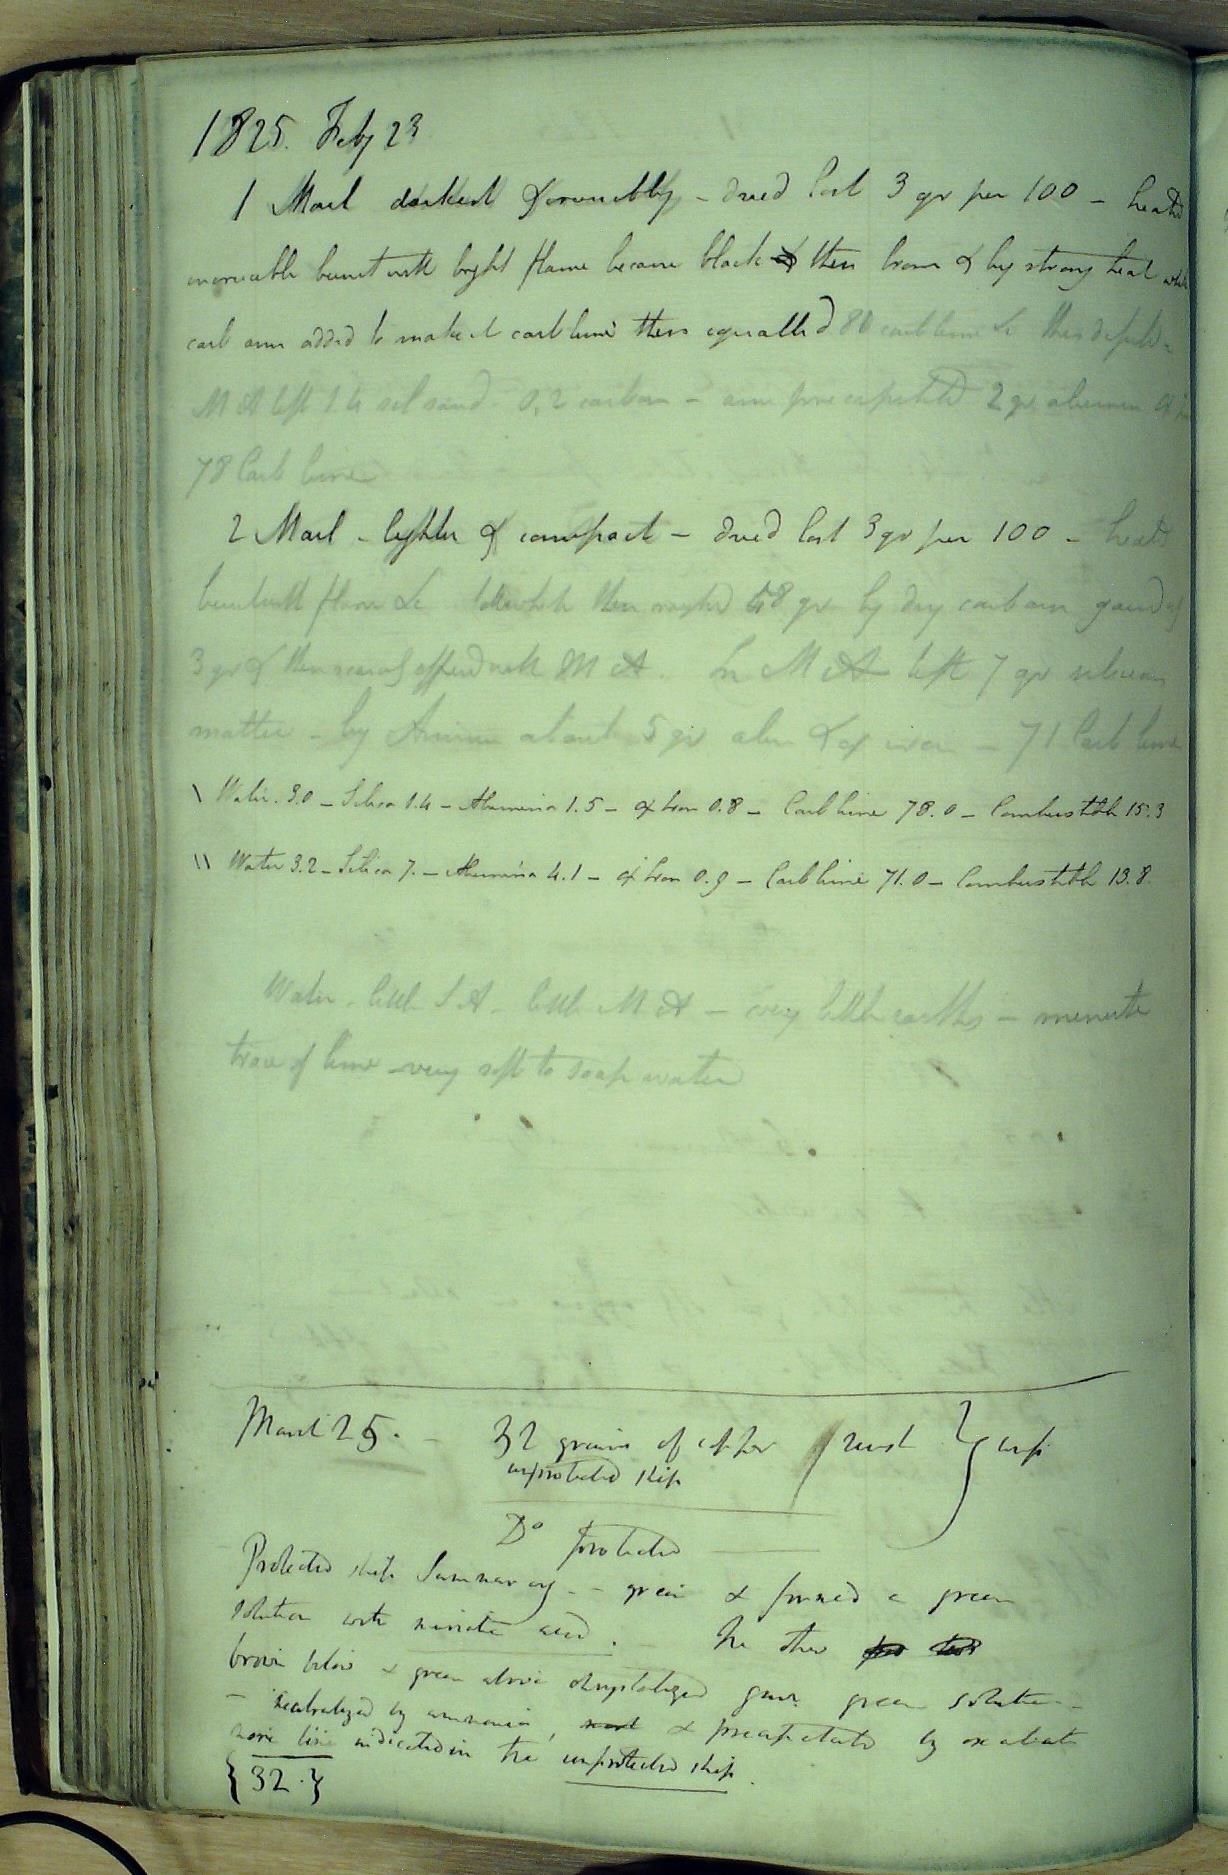 1825. Feby 23
1 Marl darkest & crumbly - dried lost 3 gr per 100 - heated
in crucible burnt with bright flame became black then brown & by strong heat white
carb amm added to make it carb lime then equalled 80 carb lime &c this dissolved in
M A left 1.4 sand 0,2 carbon - amm precipitated 2 gr alumina & iron
78 Carb lime
2 Marl - lighter & compact - dried lost 3 gr per 100 - heated
burnt with flame &c till white then weighed 68 gr by dry carb amm gained
3 gr & then effd with M A. In M A left 7 gr siliceous
matter - by Ammonia about 5 gr alum & ox iron - 71 Carb lime
\ Water. 3.0 - Silica 1.4 - Alumina 1.5 - ox iron 0.8 - Carb lime 78.0 - Combustible 15.3
\\ Water 3.2 - Silica 7. - Alumina 4.1 - ox iron 0.9 - Carb lime 71.0 - Combustible 13.8
Water - little S A - little M A - very little earths - minute
trace of lime - very soft to soap water
March 25. - 32 grains of copper rust
unprotected ship
Do protected
Protected ship Sammarang - - green & formed a green
solution with muriatic acid. - The other
brown below & green above chrystalized gave green solution -
- neutralized by ammonia, & precipitated by oxalate
more lime indicated in the unprotected ship.
{32.}